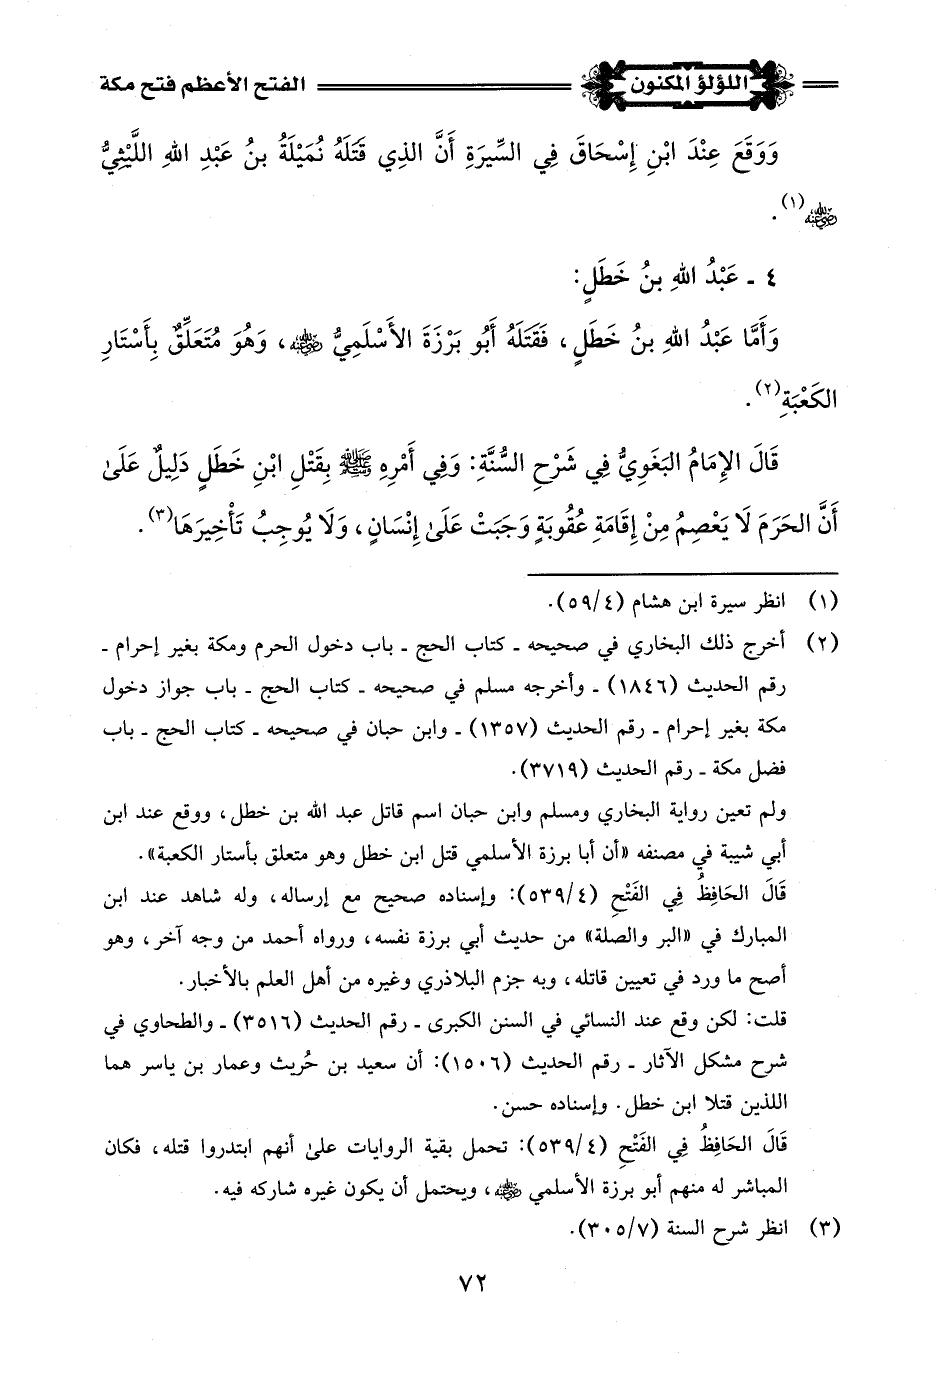 اللؤلؤ المكنون
الفتح الأعظم فتح مكة
وَوَقَعَ عِنْدَ ابْنِ إِسْحَاقَ فِي السِّيرَةِ أَنَّ الذِي قَتَلَهُ نُمَيْلَةُ بنُ عَبْدِ اللهِ اللَّيْثِيُّ
رضي الله عنه (١).
٤ ـ عَبْدُ اللهِ بنُ خَطَلٍ:
وَأَمَّا عَبْدُ اللهِ بنُ خَطَلٍ، فَقَتَلَهُ أَبُو بَرْزَةَ الأَسْلَمِيُّ رضي الله عنه، وَهُوَ مُتَعَلِّقٌ بِأَسْتَارِ
الكَعْبَةِ(٢).
قَالَ الإِمَامُ البَغَوِيُّ فِي شَرْحِ السُّنَّةِ: وَفِي أَمْرِهِ ﷺ بِقَتْلِ ابْنِ خَطَلٍ دَلِيلٌ عَلَىٰ
أَنَّ الحَرَمَ لَا يَعْصِمُ مِنْ إِقَامَةِ عُقُوبَةٍ وَجَبَتْ عَلَىٰ إِنْسَانٍ، وَلَا يُوجِبُ تَأْخِيرَهَا(٣).
(١) انظر سيرة ابن هشام (٥٩/٤).
(٢) أخرج ذلك البخاري في صحيحه ـ كتاب الحج ـ باب دخول الحرم ومكة بغير إحرام ـ
رقم الحديث (١٨٤٦) ـ وأخرجه مسلم في صحيحه ـ كتاب الحج ـ باب جواز دخول
مكة بغير إحرام ـ رقم الحديث (١٣٥٧) ـ وابن حبان في صحيحه ـ كتاب الحج ـ باب
فضل مكة ـ رقم الحديث (٣٧١٩).
ولم تعين رواية البخاري ومسلم وابن حبان اسم قاتل عبد الله بن خطل، ووقع عند ابن
أبي شيبة في مصنفه «أن أبا برزة الأسلمي قتل ابن خطل وهو متعلق بأستار الكعبة».
قَالَ الحَافِظُ فِي الفَتْحِ (٥٣٩/٤): وإسناده صحيح مع إرساله، وله شاهد عند ابن
المبارك في «البر والصلة» من حديث أبي برزة نفسه، ورواه أحمد من وجه آخر، وهو
أصح ما ورد في تعيين قاتله، وبه جزم البلاذري وغيره من أهل العلم بالأخبار.
قلت: لكن وقع عند النسائي في السنن الكبرى ـ رقم الحديث (٣٥١٦) ـ والطحاوي في
شرح مشكل الآثار ـ رقم الحديث (١٥٠٦): أن سعيد بن حُريث وعمار بن ياسر هما
اللذين قتلا ابن خطل. وإسناده حسن.
قَالَ الحَافِظُ فِي الفَتْحِ (٥٣٩/٤): تحمل بقية الروايات علىٰ أنهم ابتدروا قتله، فكان
المباشر له منهم أبو برزة الأسلمي رضي الله عنه، ويحتمل أن يكون غيره شاركه فيه.
(٣) انظر شرح السنة (٣٠٥/٧).
٧٢